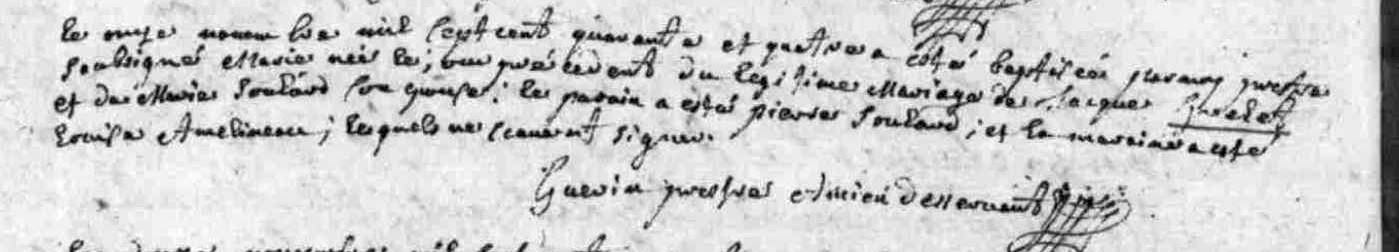 le onze novembre mil sept cent quarante et quatre a esté baptisée par moy prestre
soubsigné Marie née le jour précédent du legitime Mariage de Jacque
et de Marie Soulard son epouse; le parain a esté pierre Soulard; et la maraine a este
Louise Amelineau; lesquels ne scauent signer.
Guerin prestre desservant